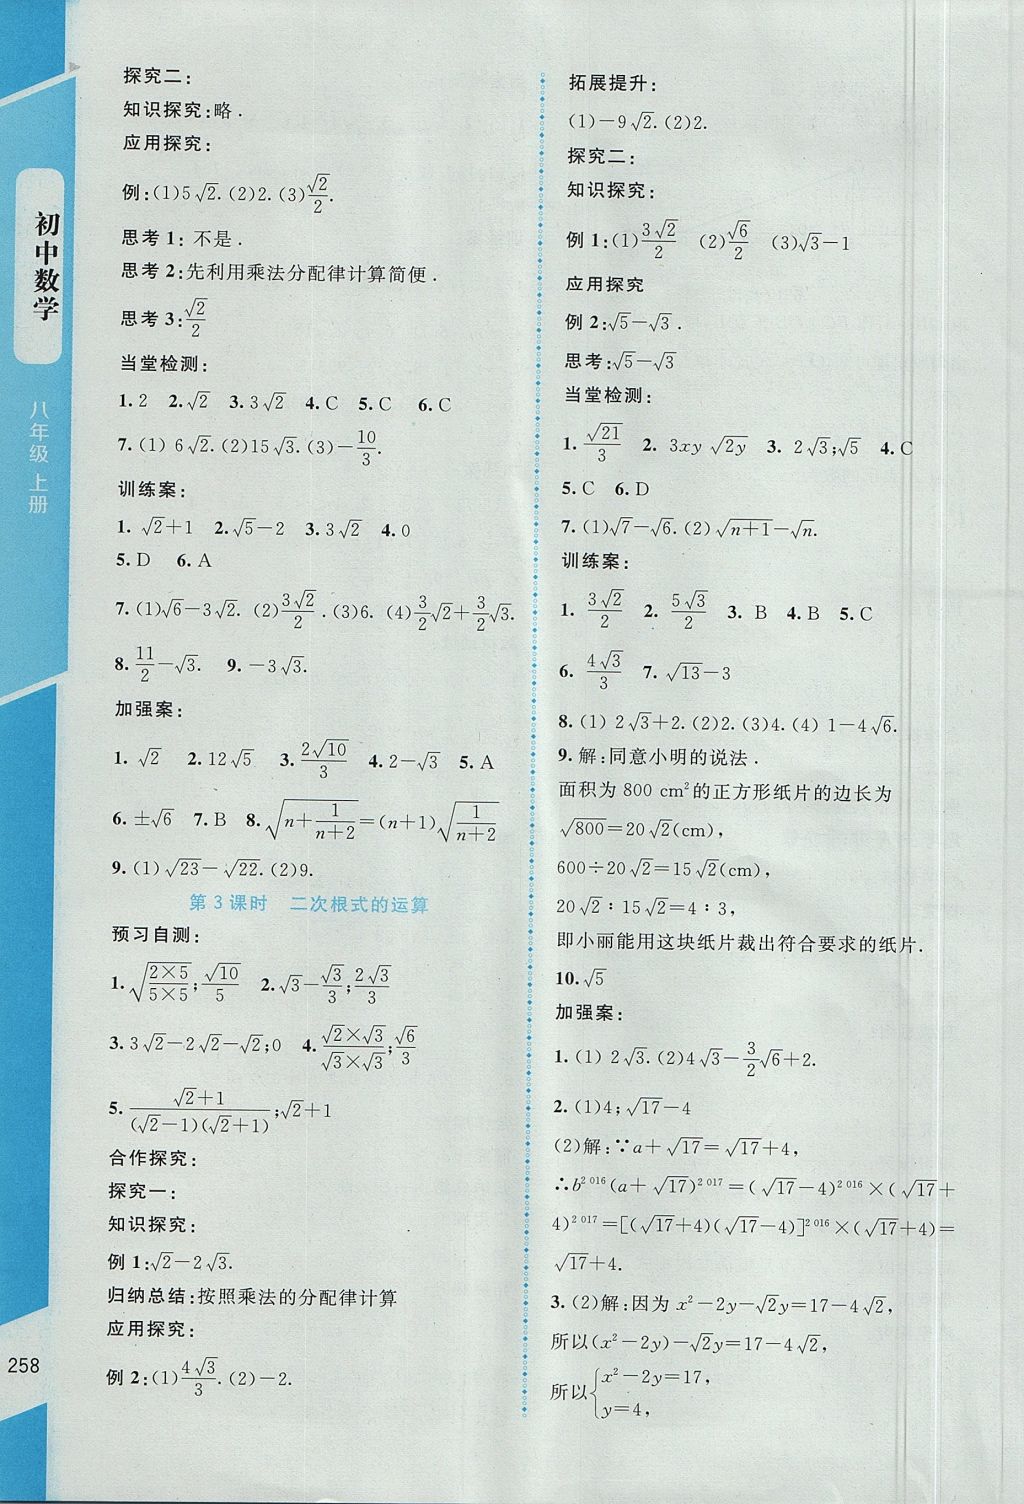 初中数学
八年级 上册
258
探究二:
知识探究:略.
应用探究:
例:(1)5√2.(2)2.(3)√2/2.
思考1:不是.
思考2:先利用乘法分配律计算简便.
思考3:√2/2
当堂检测:
1.2 2.√2 3.3√2 4.C 5.C 6.C
7.(1)6√2.(2)15√3.(3)-10/3.
训练案:
1.√2+1 2.√5-2 3.3√2 4.0
5.D 6.A
7.(1)√6-3√2.(2)3√2/2.(3)6.(4)3/2√2+3/2√3.
8.11/2-√3. 9.-3√3.
加强案:
1.√2 2.12√5 3.2√10/3 4.2-√3 5.A
6.±√6 7.B 8.√(n+1/(n+2))=(n+1)√(1/(n+2))
9.(1)√23-√22.(2)9.
第3课时 二次根式的运算
预习自测:
1.√((2×5)/(5×5));√10/5 2.√3-√3/3;2√3/3
3.3√2-2√2-√2;0 4.(√2×√3)/(√3×√3);√6/3
5.(√2+1)/((√2-1)(√2+1));√2+1
合作探究:
探究一:
知识探究:
例1:√2-2√3.
归纳总结:按照乘法的分配律计算
应用探究:
例2:(1)4√3/3.(2)-2.
拓展提升:
(1)-9√2.(2)2.
探究二:
知识探究:
例1:(1)3√2/2 (2)√6/2 (3)√3-1
应用探究
例2:√5-√3.
思考:√5-√3
当堂检测:
1.√21/3 2.3xy√2y 3.2√3;√5 4.C
5.C 6.D
7.(1)√7-√6.(2)√(n+1)-√n.
训练案:
1.3√2/2 2.5√3/2 3.B 4.B 5.C
6.4√3/3 7.√13-3
8.(1)2√3+2.(2)2.(3)4.(4)1-4√6.
9.解:同意小明的说法.
面积为800 cm²的正方形纸片的边长为
√800=20√2(cm),
600÷20√2=15√2(cm),
20√2∶15√2=4∶3,
即小丽能用这块纸片裁出符合要求的纸片.
10.√5
加强案:
1.(1)2√3.(2)4√3-3/2√6+2.
2.(1)4;√17-4
(2)解:∵a+√17=√17+4,
∴b^2 016(a+√17)^2 017=(√17-4)^2 016×(√17+
4)^2 017=[(√17+4)(√17-4)]^2 016×(√17+4)=
√17+4.
3.(2)解:因为x²-2y-√2y=17-4√2,
所以(x²-2y)-√2y=17-4√2,
所以{x²-2y=17,
y=4,